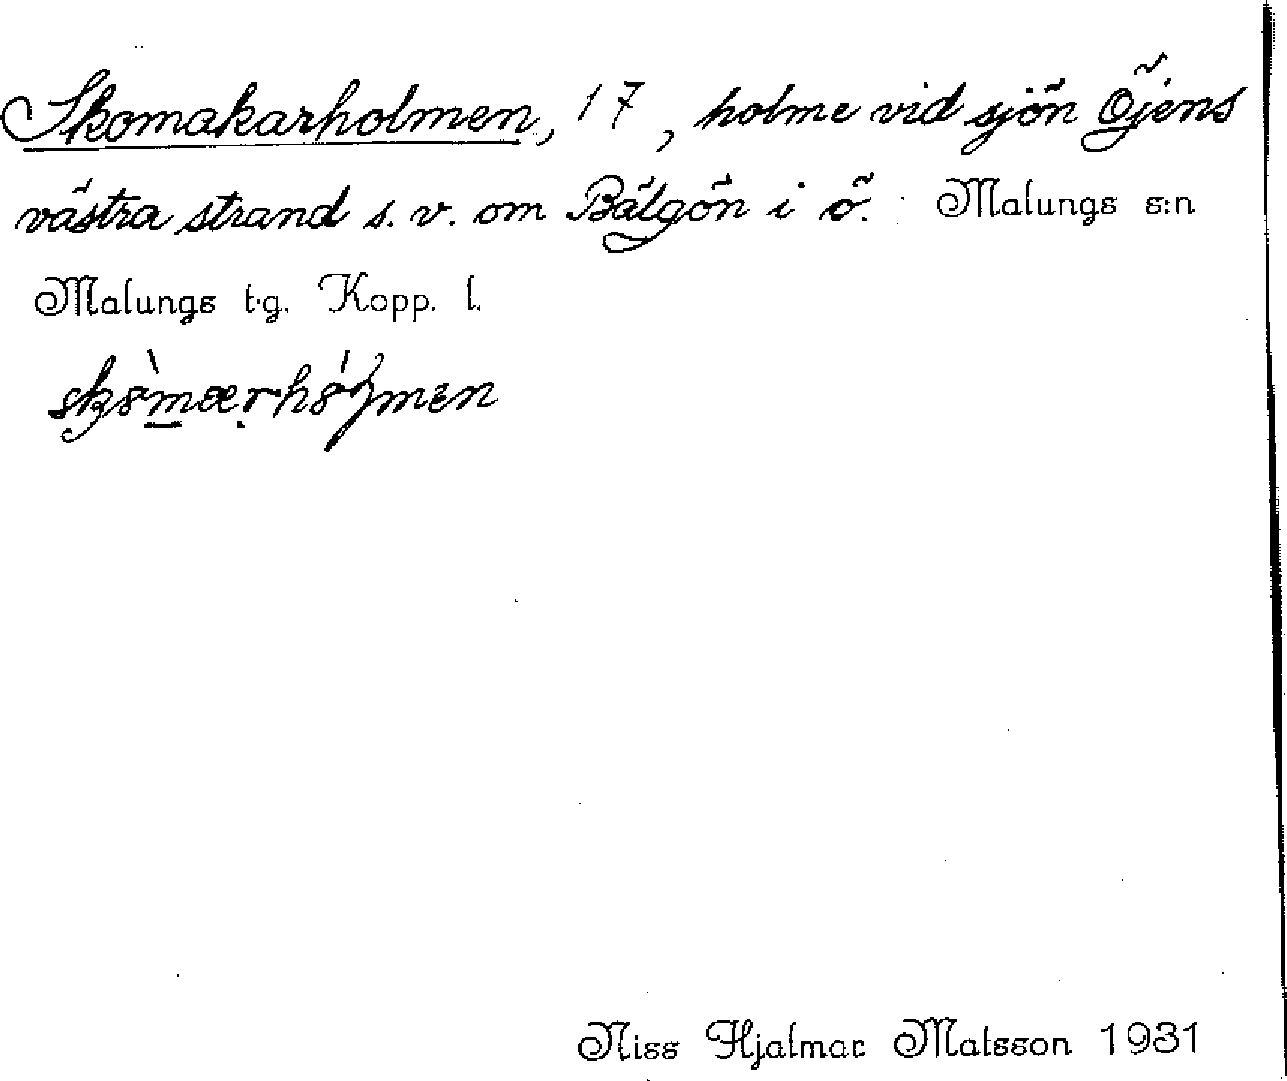 Skomakarholmen, 17, holme vid sjön Öjens
västra strand s.v. om Bälgön i ö. Malungs s:n
Malungs t.g. Kopp. l.
Niss Hjalmar Matsson 1931